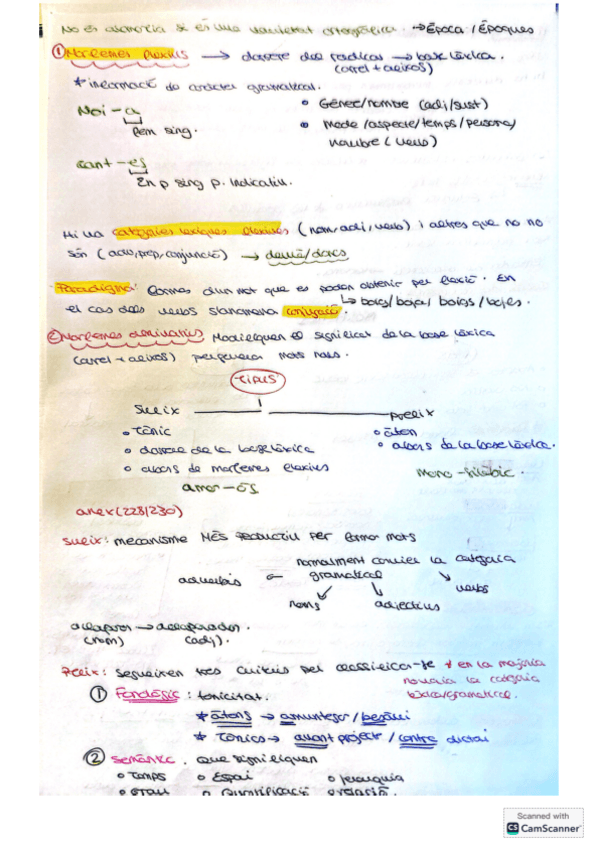 No és al·lomorfia si és una variant ortogràfica. → Època / Èpoques
① Morfemes flexius → darrere dels radical → base lèxica.
(arrel + afixos)
* informació de caràcter gramatical.
Noi - a
fem sing.
• Gènere/nombre (adj/sust)
• Mode /aspecte/temps/persona/
nombre (verb)
cant - es
2n p sing p. Indicatiu.
Hi ha categories lèxiques flexives (nom, adj, verb) i altres que no ho
són (adv, prep, conjunció) → demà/doncs
Paradigma: formes d'un mot que es poden obtenir per flexió. En
↳ boig/boja/ boigs /boges.
el cas dels verbs s'anomena conjugació
② Morfemes derivatius Modifiquen el significat de la base lèxica
(arrel + afixos) per generar mots nous.
TIPUS
Sufix
Prefix
• Tònic
• darrere de la base lèxica
• abans de morfemes flexius
amor - ós
• àton
• abans de la base lèxica.
Mono - sil·làbic.
anex (228/230)
Sufix: mecanisme MÉS productiu per formar mots
normalment canvien la categoria
gramatical
adverbis
noms
adjectius
verbs
(nom) (adj).
Prefix: segueixen tres criteris per classificar-se * en la majoria
no varia la categoria
lèxica/gramatical.
① Fonològic: tonicitat.
* àtons →
* Tònics → avantprojecte / contra
② Semàntic. què signifiquen
• Temps • Espai • jerarquia
• Grau • Quantificació • relació.
Scanned with
CS CamScanner